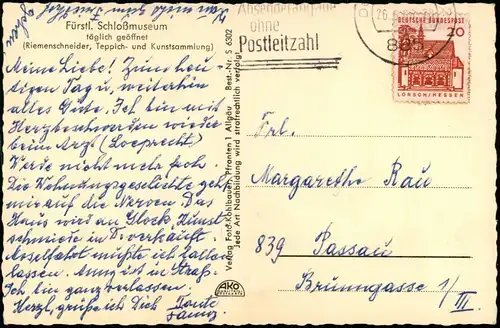 Fürstl. Schloßmuseum
täglich geöffnet
(Riemenschneider, Teppich- und Kunstsammlung)
Meine Liebe! Zum heu-
tigen Tage, weiterhin
alles Gute. Ich bin mit
Herzbeschwerden wieder
beim Arzt (Loeprecht)
Werde nicht mehr froh.
Die Wohnungsgeschichte geht
mir auf die Nerven. Das
Haus wird an Glock, Kunst
schmiede in T. verkauft.
Moselfahrt mußte ich fallen
lassen. Anny ist in Straß-
Ich bin ganz verlassen.
Herzl. grüße ich Dich Tante
Verlag Foto-Kohlbauer, Pfronten 1 Allgäu Best.-Nr. S 6302
Jede Art Nachbildung wird strafrechtlich verfolgt
AKO
Absenderangabe
ohne
Postleitzahl
26.
DEUTSCHE BUNDESPOST
20
LORSCH/HESSEN
Frl.
Margarethe Rau
839 Passau
Brunngasse 1/III